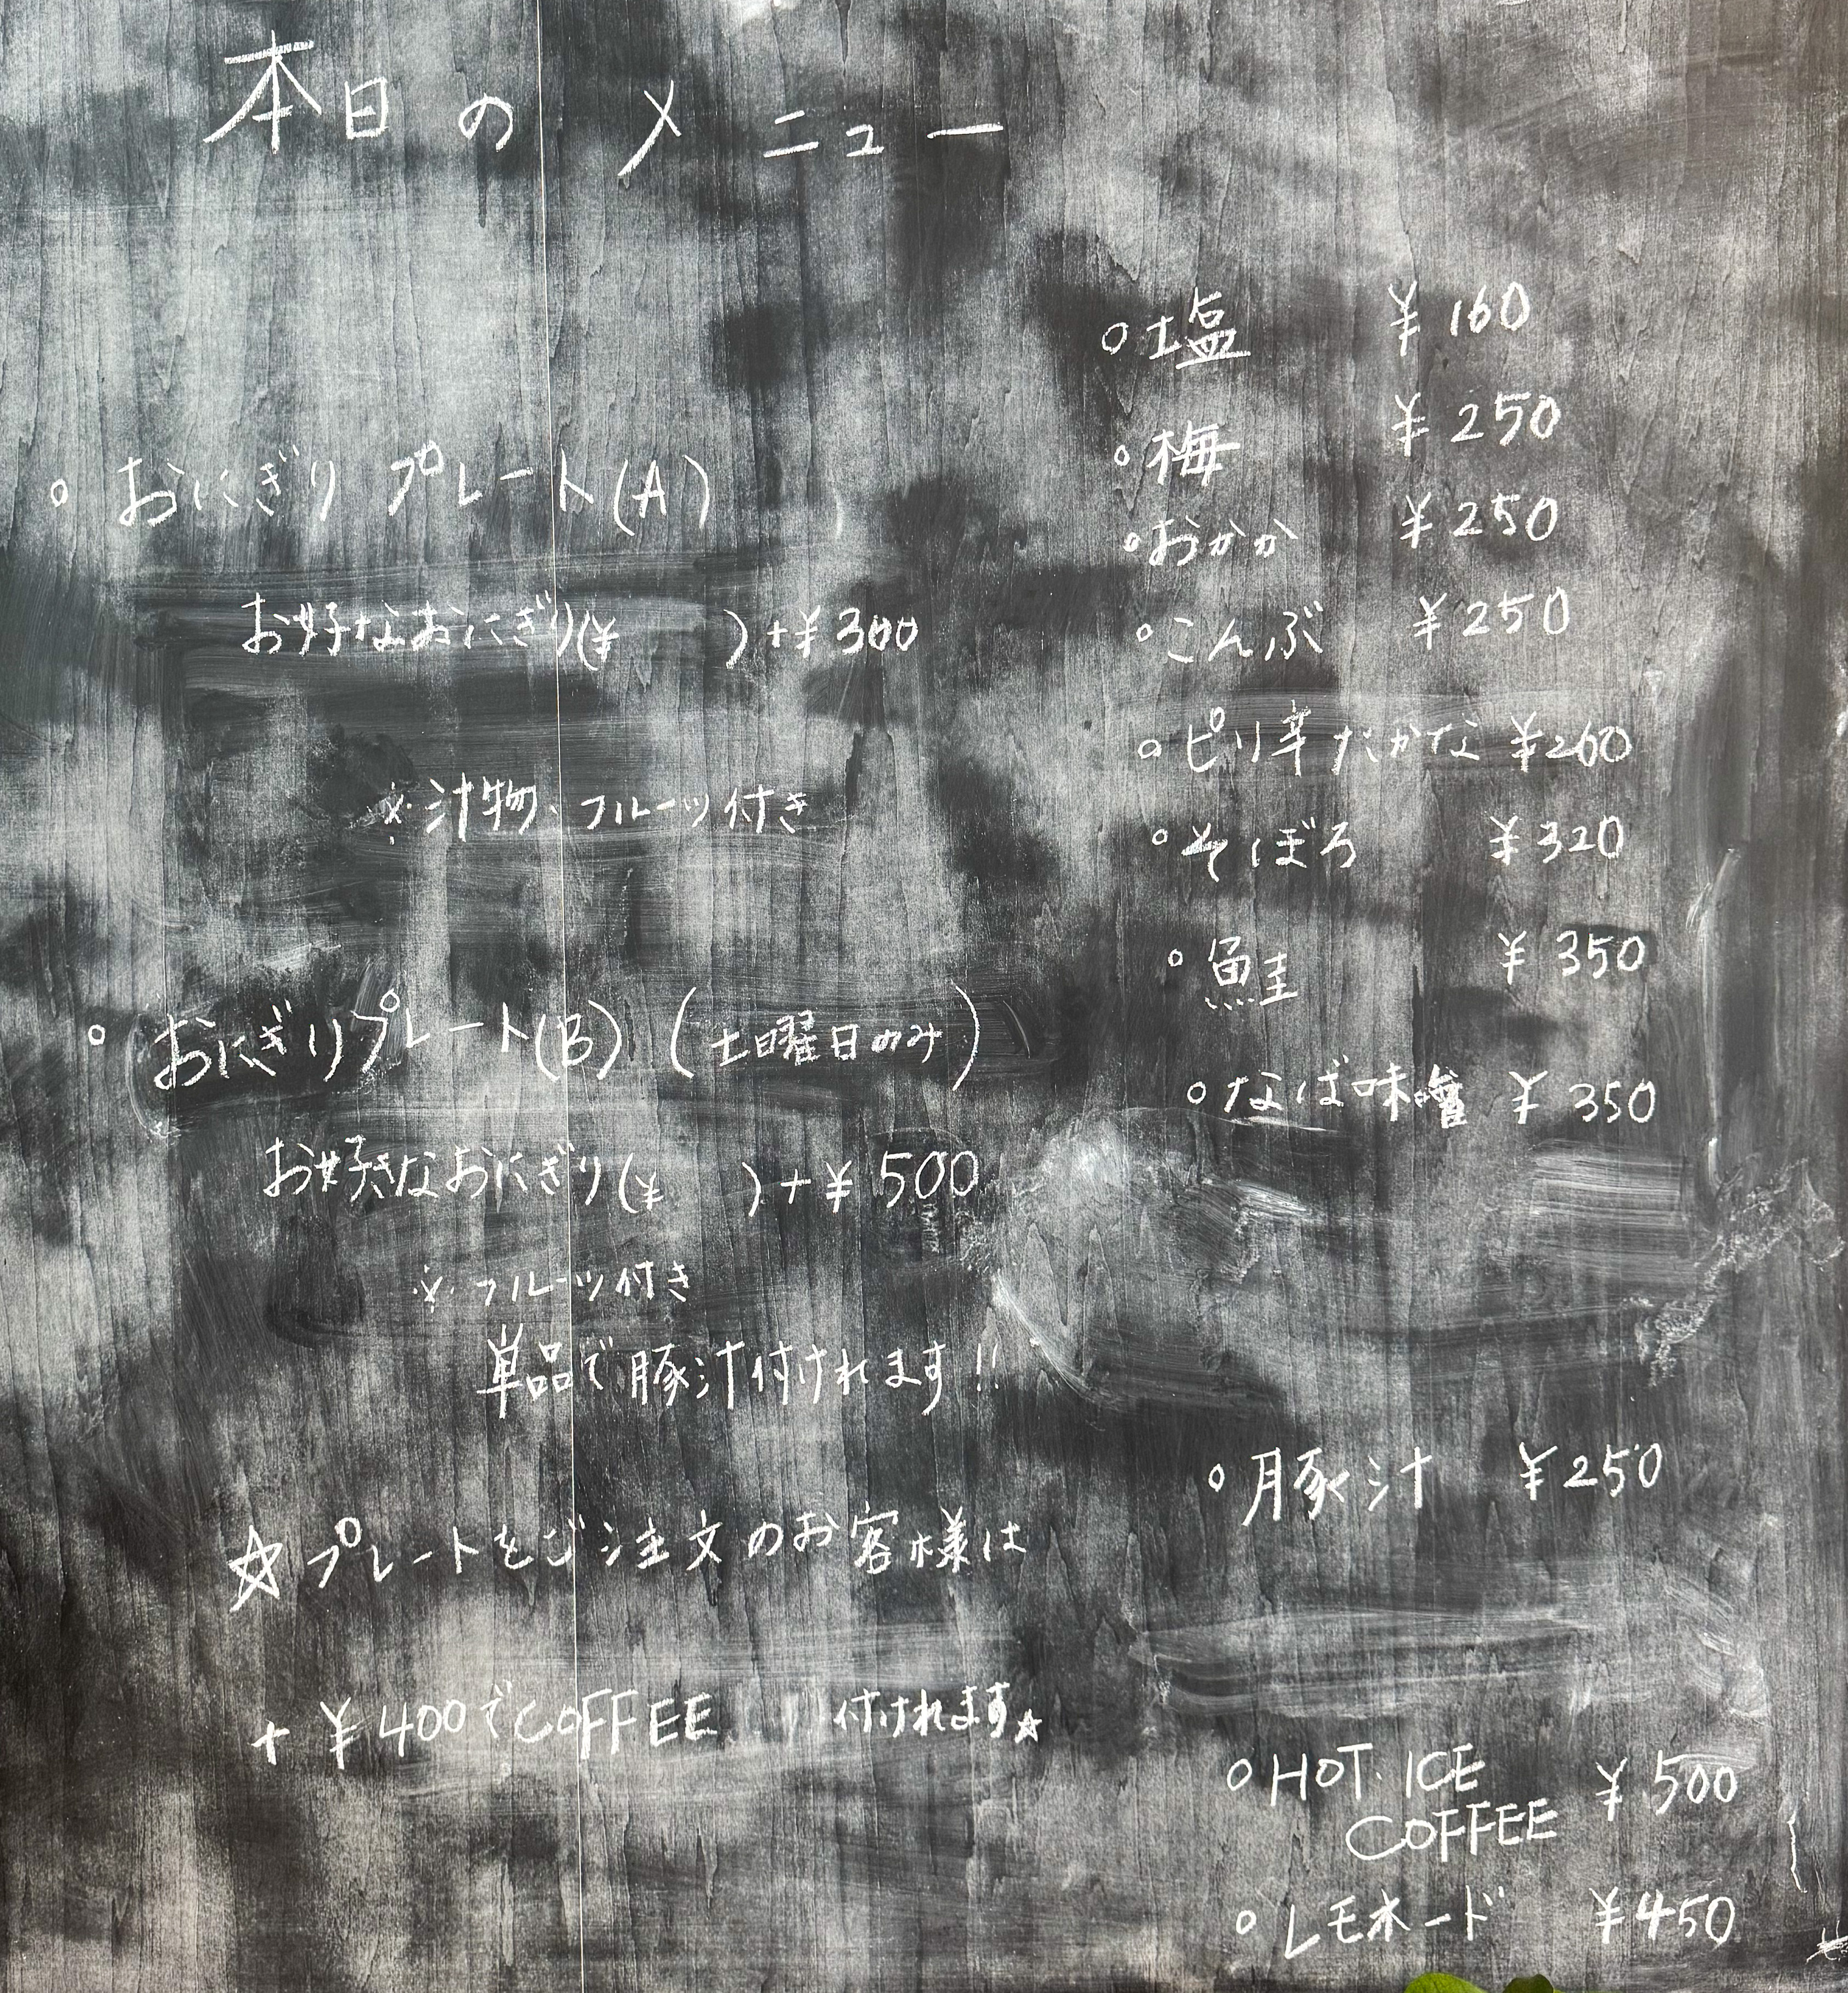 本日のメニュー
○ おにぎり プレート(A)
お好なおにぎり(¥ )+¥300
※汁物、フルーツ付き
○ おにぎりプレート(B) (土曜日のみ)
お好きなおにぎり(¥ )+¥500
※フルーツ付き
単品で豚汁付けれます!!
☆プレートをご注文のお客様は
+ ¥400でCOFFEE 付けれます☆
○塩 ¥160
○梅 ¥250
○おかか ¥250
○こんぶ ¥250
○ピリ辛たかな ¥260
○そぼろ ¥320
○鮭 ¥350
○なば味噌 ¥350
○豚汁 ¥250
○HOT・ICE
COFFEE ¥500
○レモネード ¥450